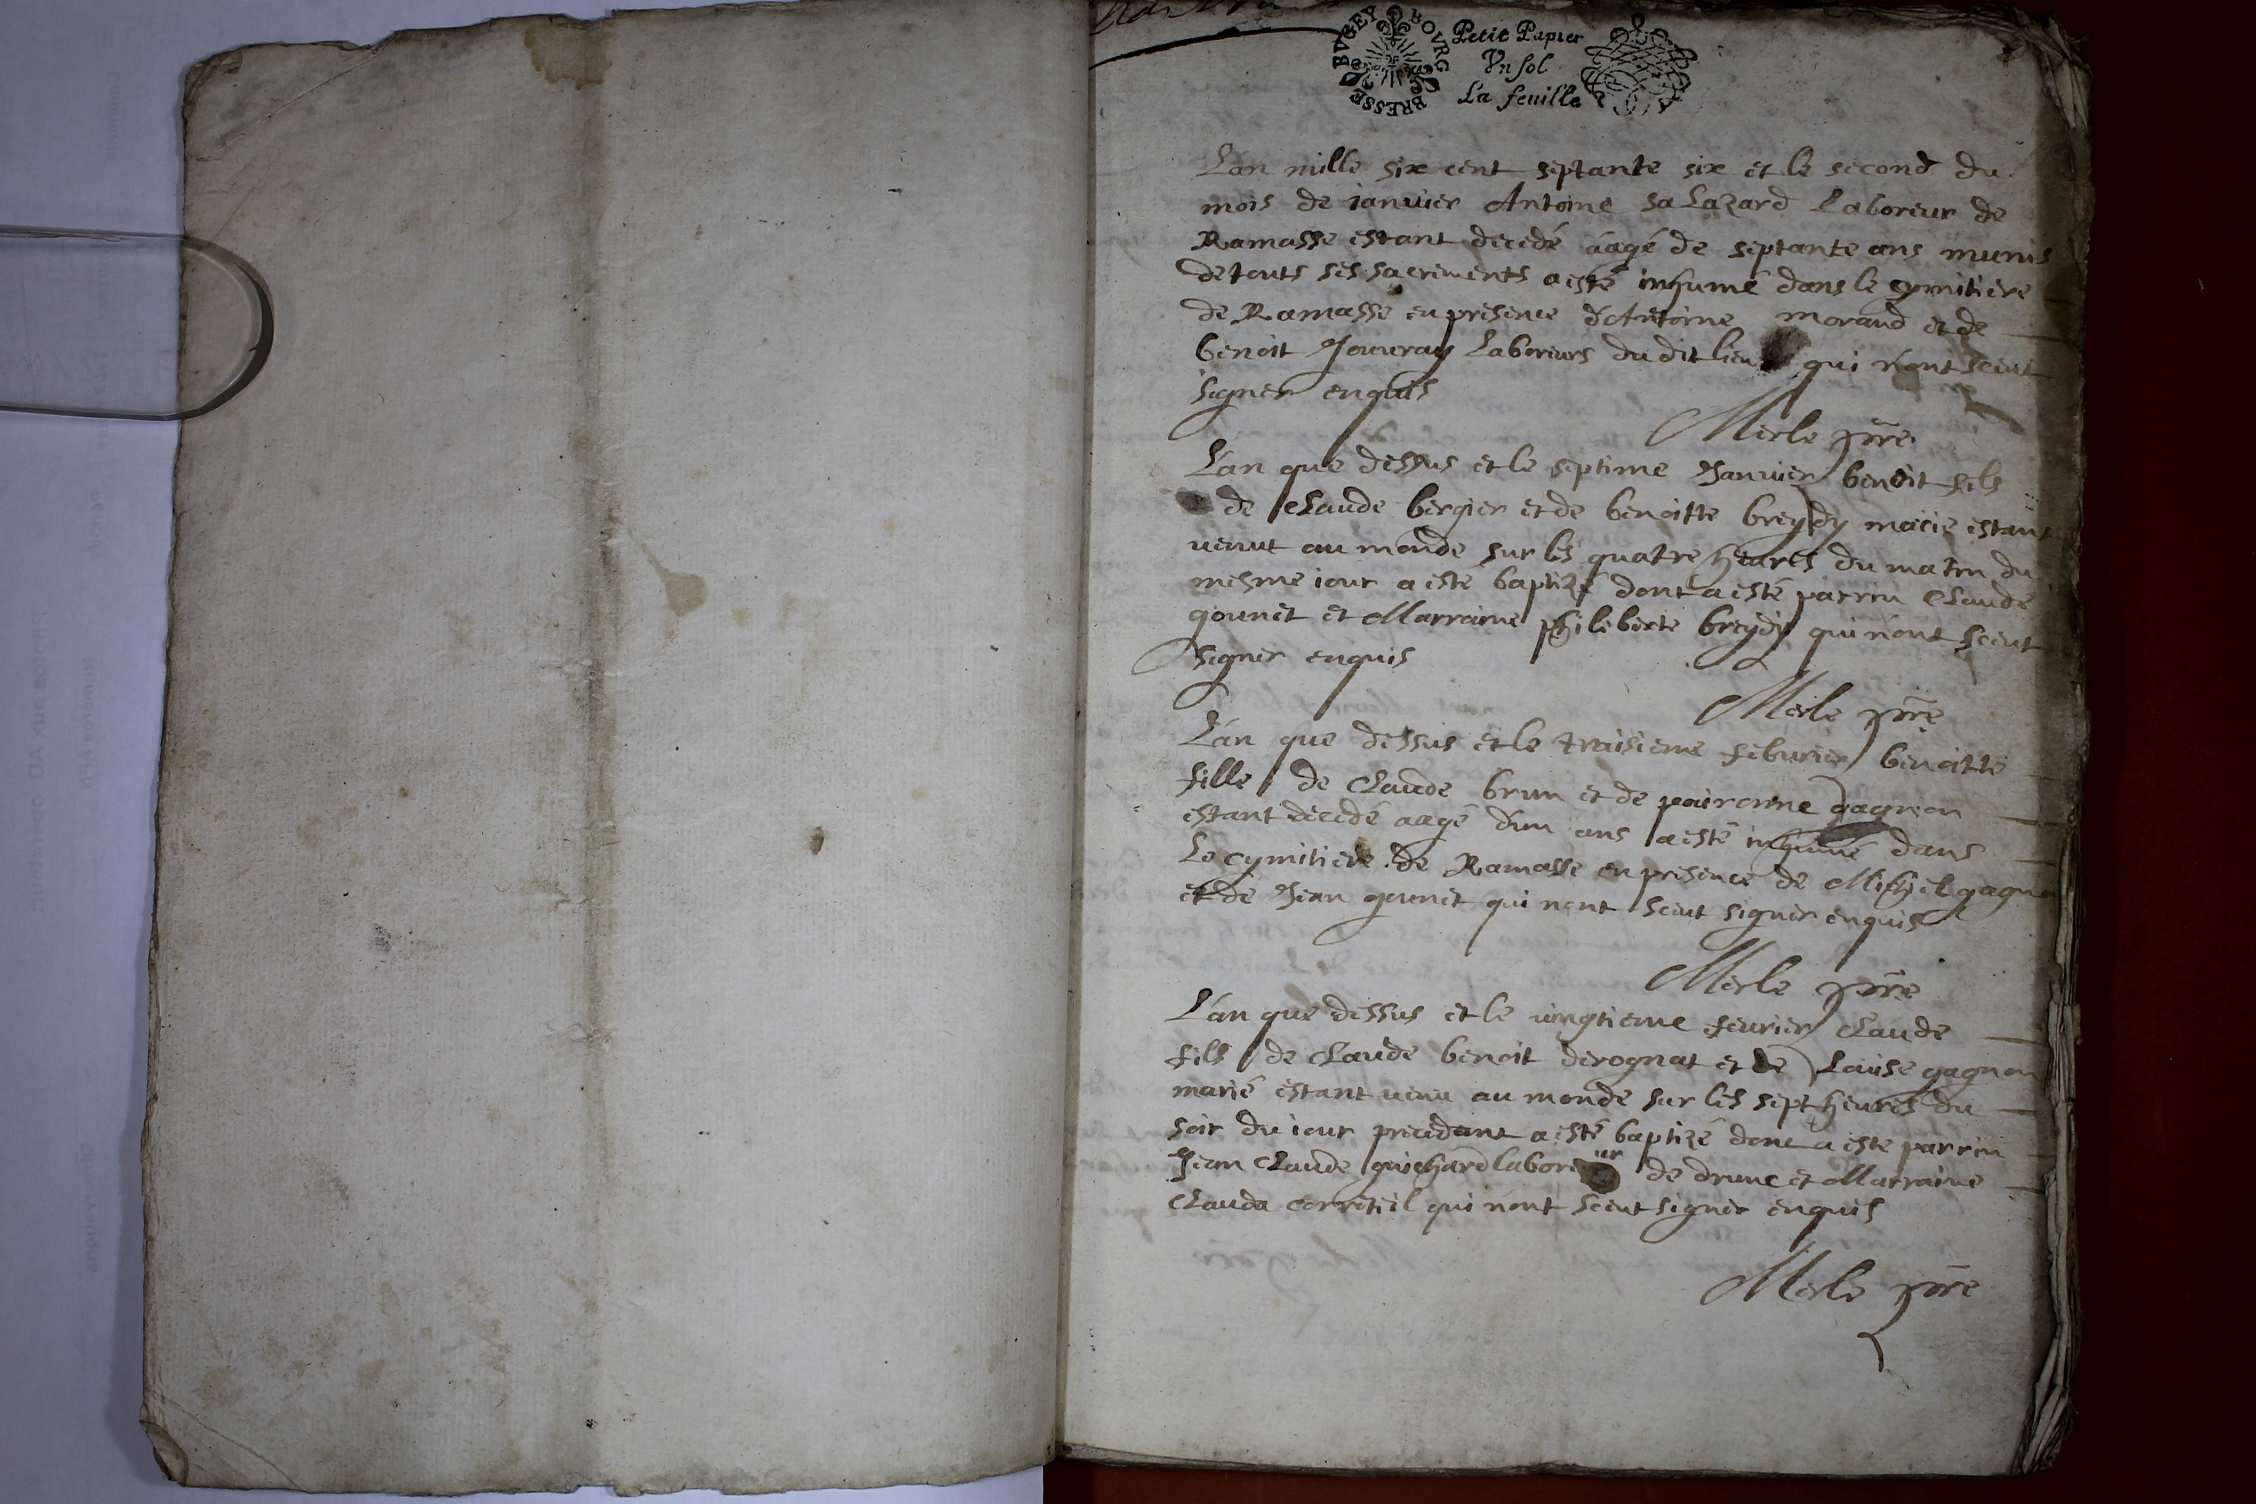 BVGEY BOVRG BRESSE
Petit Papier
Vn sol
La feuille
L'an mille six cent septante six et le second du
mois de ianuier Antoine saLazard Laboreur de
Ramasse estant decedé áagé de septante ans munis
de touts ses sacrements a esté inhumé dans le cymitiere
de Ramasse en presence d'Antoine morand et de
benoit Jouuray Laboreurs du dit lieu qui n'ont sceut
signer enquis
Merle pbre
L'an que dessus et le septime Januier benoit fils
de Claude bergier et de benoitte breydy marie estant
venut au monde sur les quatre heures du matin du
mesme iour a esté baptizé dont a esté parrin Claude
gounet et Marraine philiberte breydy qui n'ont sceut
signer enquis
Merle pbre
L'an que dessus et le troisieme feburier benoitte
fille de Claude brun et de pairorine gagnion
estant decedé aagé d'un ans a esté inhumé dans
Le cymitiere de Ramasse en presence de Michel gagno
et de Jean gounet qui nont sceut signer enquis
Merle pbre
L'an que dessus et le uingtieme feurier Claude
fils de Claude benoit derognat et de Louise gagnon
marié estant uenu au monde sur les sept heures du
soir du iour precedant a esté baptizé dont a este parrin
Jean Claude guichard laboreur de drunc et Marraine
Clauda corretiel qui n'ont sceut signer enquis
Merle pbre